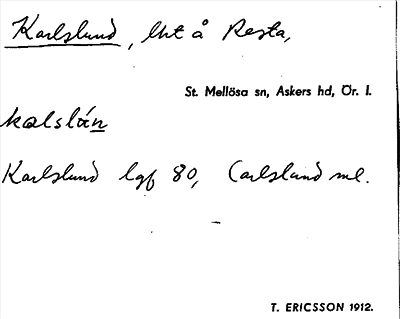 Karlslund, lht å Resta,
St. Mellösa sn, Askers hd, Ör. l.
kalslán
Karlslund lgf 80, Carlslund ml.
T. ERICSSON 1912.